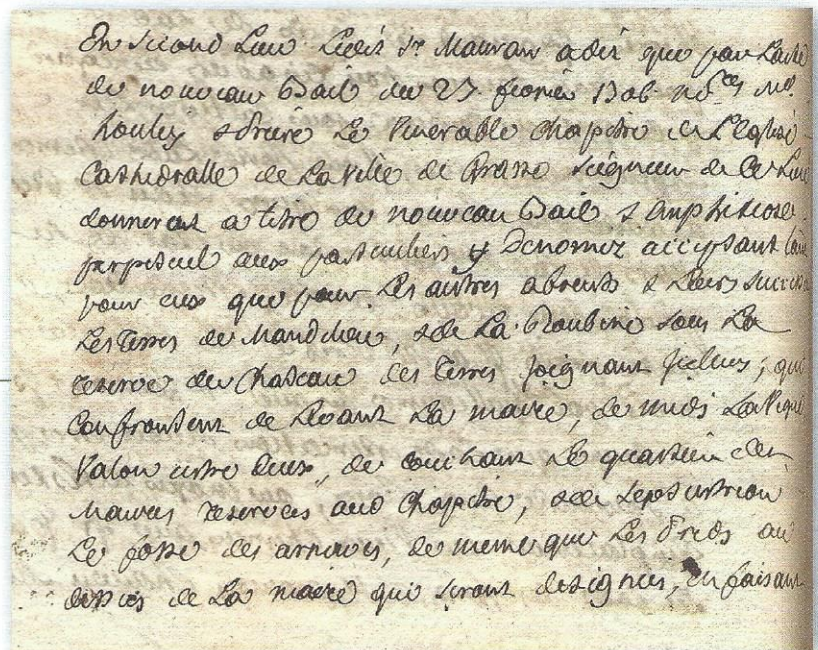 En second Lieu Ledit sr Mauran a dit que par Lacte
de nouveau Bail du 27 fevrier 1706 no.res Me.
houles & frere Le Venerable Chapitre de L'eglise
Cathedralle de La Ville de Grasse seigneur de Ce Lieu
donnerent a titre de nouveau Bail & Anphiteose
perpetuel aux particuliers y Denomez acceptant tant
pour eux que pour Les autres absents & Leurs success
Les Terres de Mandelieu, & de La Roubine sous La
reserve du Chateau des Terres joignant jcelluy; qui
Confrontent de Levant La maire, de midi La Vigne
Valon entre deux, de couchant Le quartier des
Maures reserves aud Chapitre, & de septentrion
Le fosse des arnoux, de meme que Les Preds au
dessus de La maire qui seront designes, en faisant